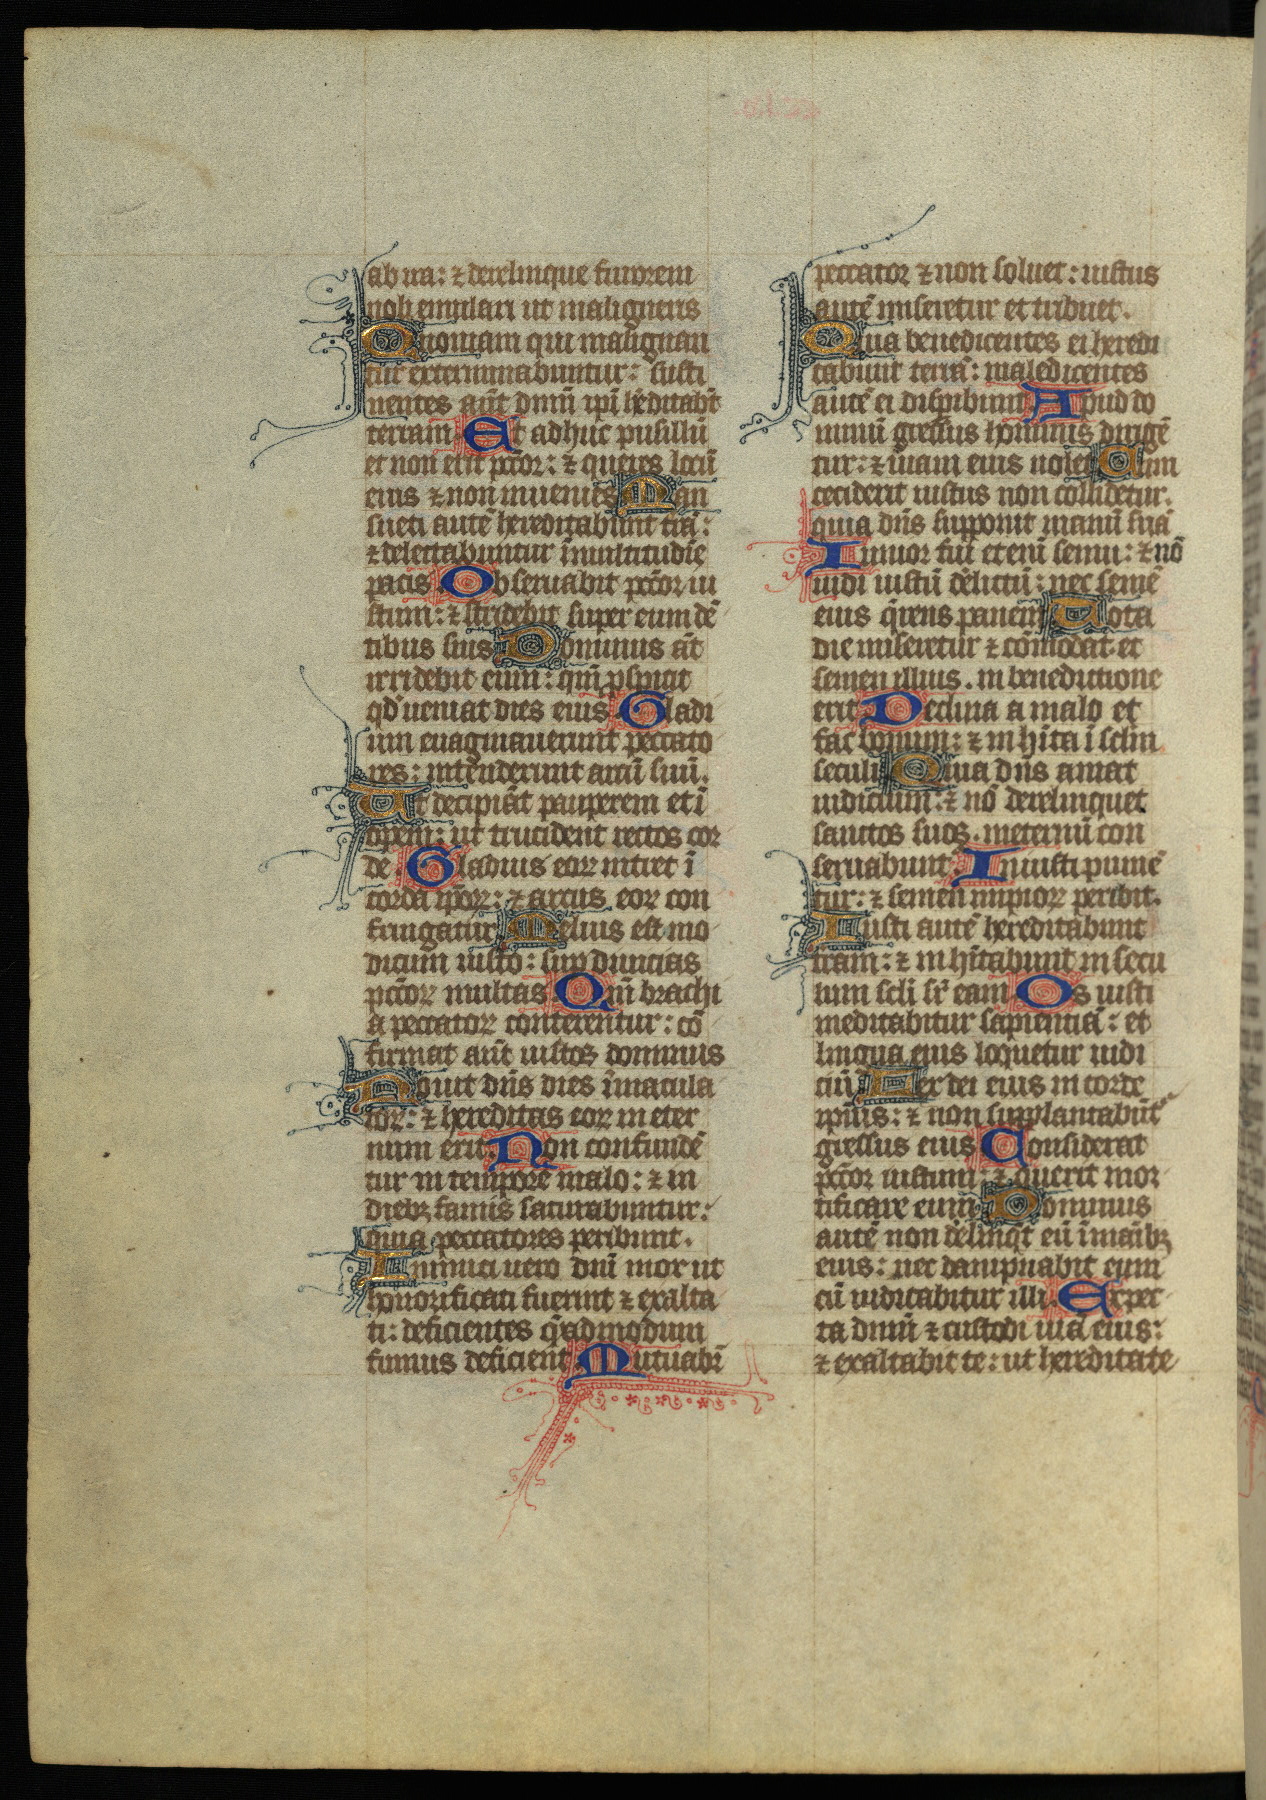 ab ira: ⁊ derelinque furorem
noli emulari ut maligneris
Quoniam qui malignan
tur exterminabuntur: susti
nentes aūt dnm̄ ipi h̄editabt̄
terram Et adhuc pusillū
et non erit pc̄cōr: ⁊ queres locū
eius ⁊ non inuenies Man
sueti autē hereditabunt trā̄:
⁊ delectabuntur īmultitudīe
pacis Obseruabit pc̄cōr iu
stum: ⁊ stridebit super eum dē
tibus suis Dominus āt
irridebit eum: qm̄ pspicit
qd̓ ueniat dies eius Gladi
um euaginauerunt peccato
res: intenderunt arcū suū.
Ut decipiāt pauperem et ī
opem: ut trucident rectos cor
de Gladius eoꝝ intret ī
corda ipōꝝ: ⁊ arcus eoꝝ con
fringatur Melius est mo
dicum iusto: sup diuicias
pc̄cōꝝ multas Qm̄ brachi
a peccatoꝝ conterentur: cō
firmat aūt iustos dominus
Nouit dn̄s dies īmacula
toꝝ: ⁊ hereditas eoꝝ in eter
num erit: Non confundē
tur in tempore malo: ⁊ in
diebꝫ famis saturabuntur:
quia peccatores peribunt.
Inimici uero dnī mox ut
honorificati fuerint ⁊ exalta
ti: deficientes q̄admodum
fumus deficient Mutuabr̄
peccator ⁊ non soluet: iustus
autē miseretur et tribuet.
Quia benedicentes ei heredi
tabunt terrā: maledicentes
autē ei disperibunt Apud do
minū gressus hominis dirigē
tur: ⁊ uiam eius uolet Cum
ceciderit iustus non collidetur.
quia dn̄s supponit manū suā
Iunior fui etenī senui: ⁊ nō
uidi iustū delictū: nec semē
eius q̄rens panem Tota
die miseretur ⁊ cōmodat. et
semen illius. in benedictione
erit Declina a malo et
fac bonum: ⁊ inhīta ī sclm̄
seculi Quia dn̄s amat
iudicium: ⁊ nō derelinquet
sanctos suoꝫ. ineternū con
seruabunt̄ Iniusti punie
tur: ⁊ semen impioꝝ peribit.
Iusti autē hereditabunt
tram: ⁊ inhītabunt in secu
lum scli sr̄ eam Os iusti
meditabitur sapientiā: et
lingua eius loquetur iudi
ciū Lex dei eius in corde
ipsius: ⁊ non supplantabūt̄
gressus eius Considerat
pc̄cōr iustum: ⁊ querit mor
tificare eum Dominus
autē non delinq̄t eū īmaībꝫ
eius: nec dampnabit eum
cū iudicabitur illi Expec
ta dnm̄ ⁊ custodi uiā eius:
⁊ exaltabit te: ut hereditate